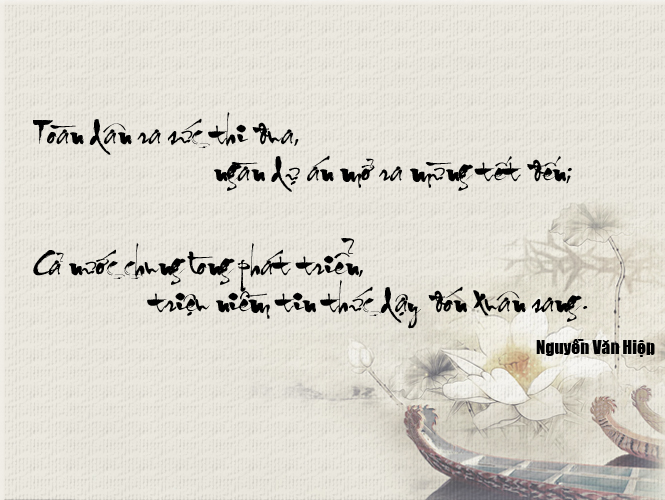 Toàn dân ra sức thi đua,
ngàn dự án mở ra mừng tết đến;
Cả nước chung lòng phát triển,
triệu niềm tin thức dậy đón Xuân sang.
Nguyễn Văn Hiệp